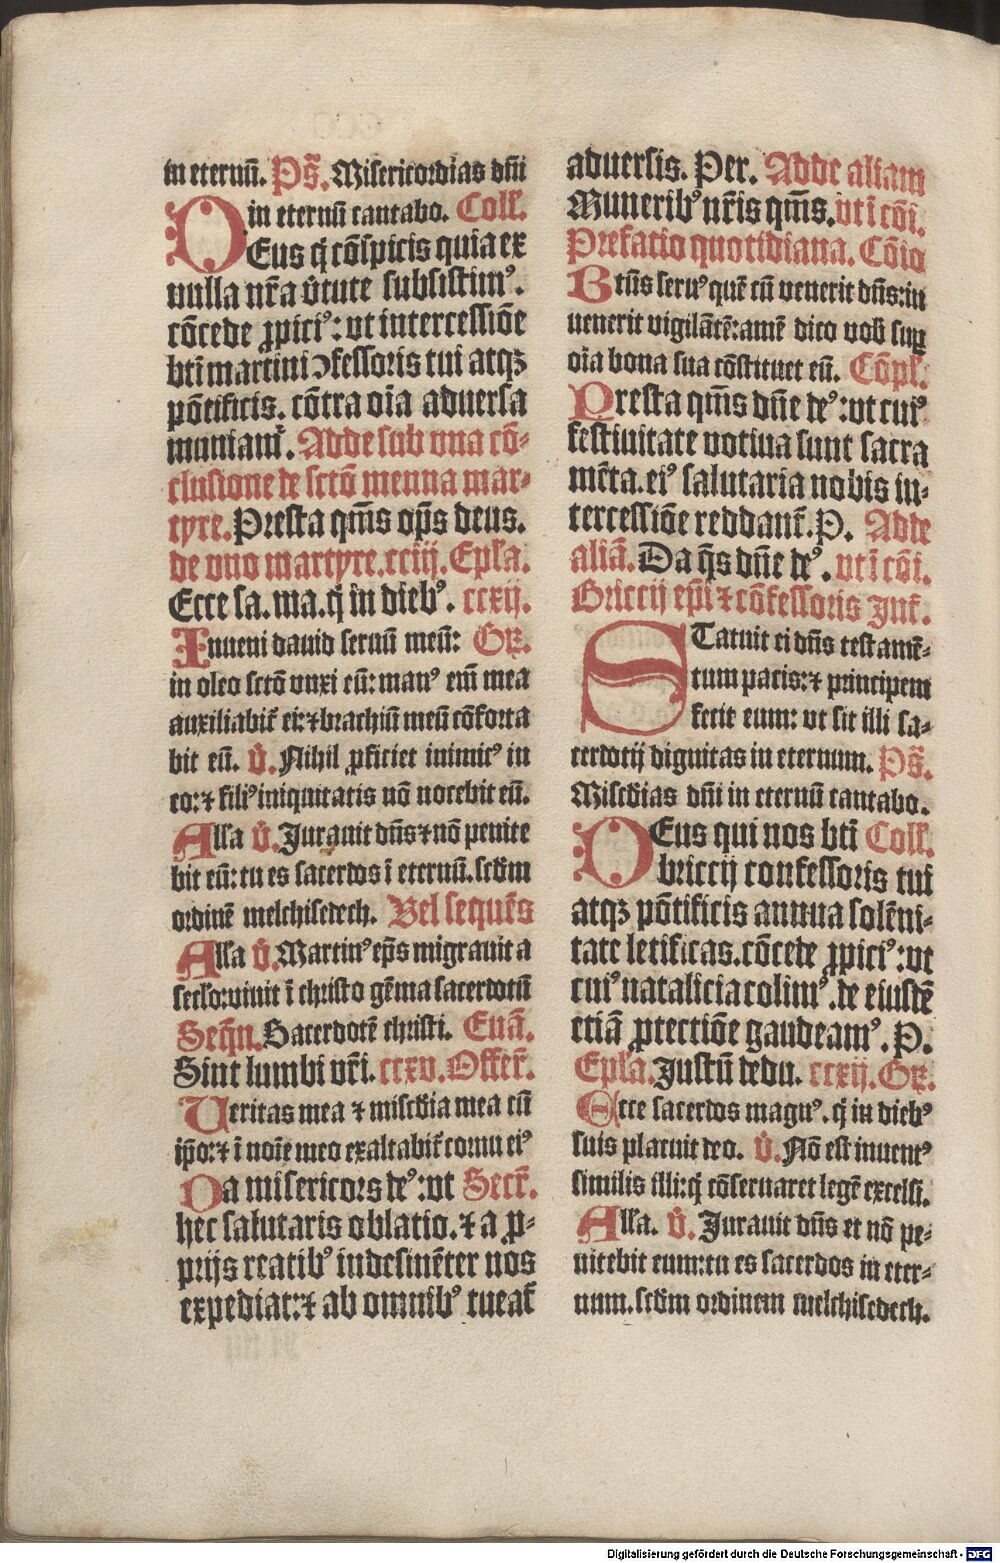 in eternū. Ps̄. Misericordias dn̄i
in eternū cantabo. Coll̄.
DEus q̇ cōspicis quia ex
nulla nr̄a v̇tute subsistimꝰ.
cōcede ꝓpiciꝰ: vt intercessiōe
bt̄i martini ↄfessoris tui atqꝫ
pōtificis. cōtra oīa aduersa
muniamr̄. Adde sub vna cō-
clusione de sctō menna mar-
tyre. Presta qm̄s op̄s deus.
de vno martyre. cciij. Ep̄la.
Ecce sa. ma. q̇ in diebꝰ. ccxij.
Inueni dauid seruū meū: Gꝛ̄.
in oleo sctō vnxi eū: manꝰ em̄ mea
auxiliabit̄ ei: ⁊ brachiū meū cōforta
bit eū. v̇. Nihil ꝓficiet inimicꝰ in
eo: ⁊ filiꝰ iniquitatis nō nocebit eū.
Alla v̇. Jurauit dn̄s ⁊ nō penite
bit eū: tu es sacerdos ī eternū. scd̄m
ordinē melchisedech. Vel sequēs
Alla v̇. Martinꝰ ep̄s migrauit a
seclo: viuit ī christo gēma sacerdotū
Seqn̄. Sacerdotē christi. Euā.
Sint lumbi vr̄i. ccxv. Offer̄.
Veritas mea ⁊ misc̄dia mea cū
ip̄o: ⁊ ī noīe meo exaltabit̄ cornu eiꝰ
Da misericors deꝰ: vt Secr̄.
hec salutaris oblatio. ⁊ a ꝓ-
prijs reatibꝰ indesinēter nos
expediat: ⁊ ab omnibꝰ tueat̄
aduersis. Per. Adde aliam
Muneribꝰ nr̄is qm̄s. vt ī cōi.
Prefatio quotidiana. Cōio
Btūs seruꝰ quē cū venerit dn̄s: in
uenerit vigilātē: amē dico vob̄ suꝑ
oīa bona sua cōstituet eū. Cōpl̄.
Presta qm̄s dn̄e deꝰ: vt cuiꝰ
festiuitate votiua sunt sacra
mēta. eiꝰ salutaria nobis in-
tercessiōe reddant̄. P. Adde
aliā. Da q̄s dn̄e deꝰ. vt ī cōi.
Briccij ep̄i ⁊ cōfessoris Int̄.
STatuit ei dn̄s testamē-
tum pacis: ⁊ principem
fecit eum: vt sit illi sa-
cerdotij dignitas in eternum. Ps̄.
Misc̄dias dn̄i in eternū cantabo.
DEus qui nos bt̄i Coll̄.
briccij confessoris tui
atqꝫ pōtificis annua solēni-
tate letificas. cōcede ꝓpiciꝰ: vt
cuiꝰ natalicia colimꝰ. de eiusdē
etiā ꝓtectiōe gaudeamꝰ. P.
Ep̄la. Justū dedu. ccxij. Gꝛ̄.
Ecce sacerdos magnꝰ. q̇ in diebꝰ
suis placuit deo. v̇. Nō est inuentꝰ
similis illi: q̇ cōseruaret legē excelsi.
Alla. v̇. Jurauit dn̄s et nō pe-
nitebit eum: tu es sacerdos in eter-
num. scd̄m ordinem melchisedech.
Digitalisierung gefördert durch die Deutsche Forschungsgemeinschaft - DFG